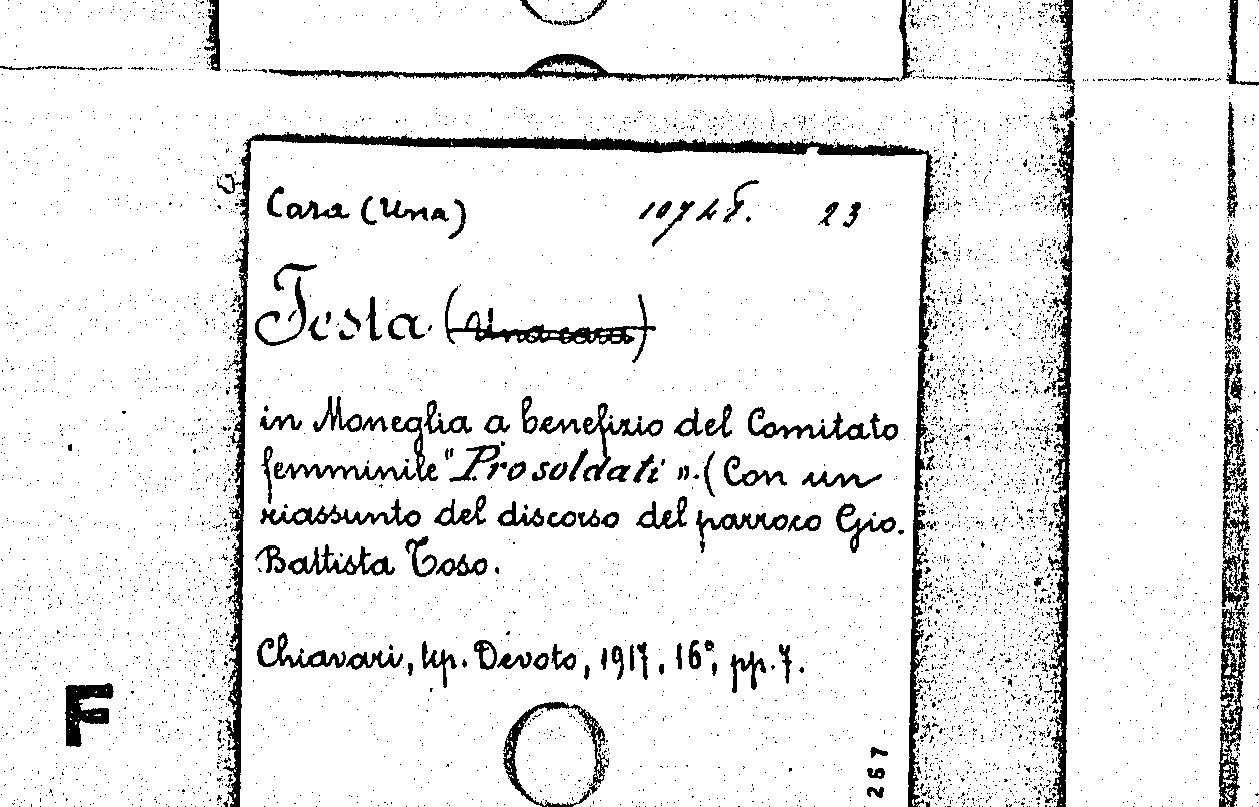 Cara (Una) 23
Festa (Una cara)
in Moneglia a benefizio del Comitato
femminile "Pro soldati". (Con un
riassunto del discorso del parroco Gio.
Battista Toso.
Chiavari, tip. Devoto, 1917, 16°, pp. 7.
F
267